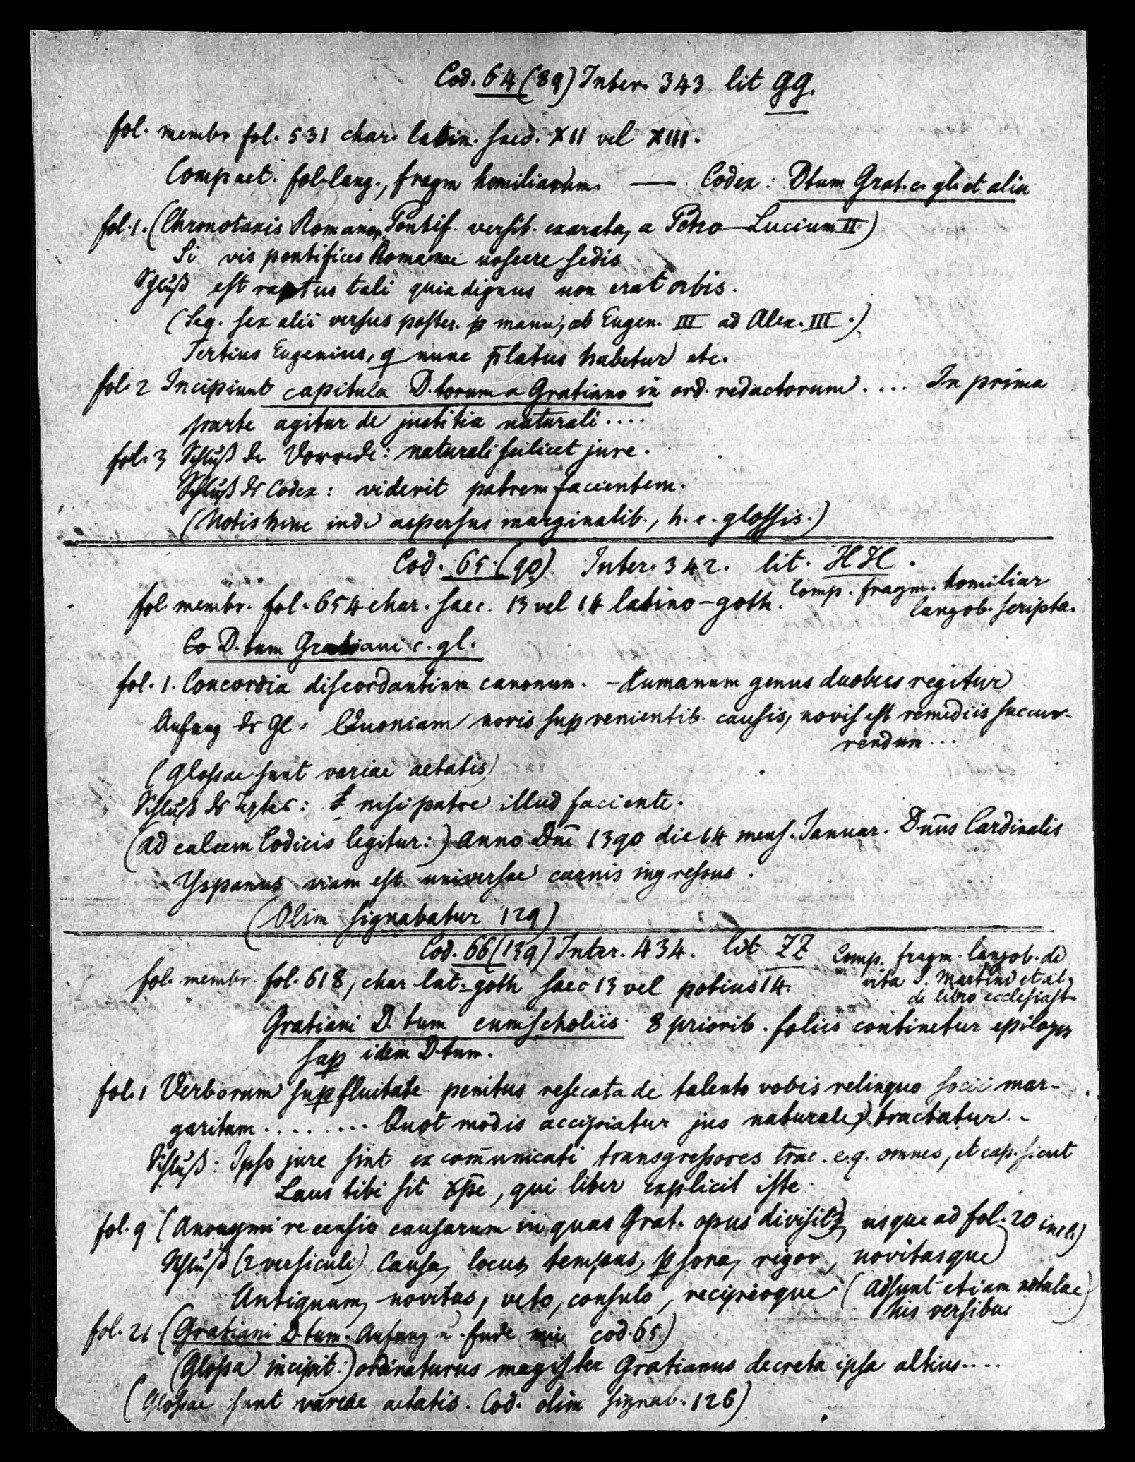 Cod. 64 (89) Inter. 343 lit gg.
fol. membr. fol. 531 char. latin. saec. XII vel XIII.
Compact. fol. lang., fragm homiliarum. — Codex: Dtum Grat. c. gl. et alia
fol. 1. (Chronotaxis Romanor. Pontif. versib. exarata, a Petro — Lucium II)
Si vis pontifices Romanae noscere sedis
Schluß est raptus tali quia dignus non erat orbis.
(Seq. sex alii versus poster. p manu, ab Eugen. III ad Alex. III.)
Tertius Eugenius, q nunc p̄latus habetur etc.
fol. 2 Incipiunt capitula D.torum a Gratiano in ord. redactorum .... In prima
parte agitur de justitia naturali ....
fol. 3 Schluß der Vorrede: naturali scilicet jure.
Schluß ds Codex: viderit patrem facientem.
(Notis hinc inde aspersus marginalib., h. e. glossis.)
Cod. 65 (90) Inter. 342. lit. HH.
fol. membr. fol. 654 char. saec. 13 vel 14 latino-goth. Comp. fragm. homiliar
langob. scripta.
Co D.tum Gratiani c. gl.
fol. 1. Concordia discordantium canonum. - Humanum genus duobus regitur
Anfang ds Gl. Quoniam novis sup venientib causis, novis est remediis succur-
rendum ...
(Glossae sunt variae aetatis)
Schluß ds Textes: nisi patre illud faciente.
(Ad calcem Codicis legitur:) Anno Dni 1390 die 14 mens. Januar. Dnus Cardinalis
Yspanus viam est universae carnis ingressus.
(Olim signabatur 129)
Cod. 66 (139) Inter. 434. lit ZZ Comp. fragm. langob. de
vita S. Martini et al.
de libro ecclesiast.
fol. membr. fol. 618, char lat-goth saec 13 vel potius 14.
Gratiani D.tum cum scholiis. 8 priorib. foliis continetur epilogus
sup idem D.tum.
fol. 1 Verborum supfluitate penitus resecata de talento vobis relinquo socii mar-
garitum ........ Quot modis accipiatur jus naturale, tractatur -
Schluß: Ipso jure sint excommunicati transgressores trac. e. q. omnes, et cap. sicut
Laus tibi sit xp̄e, qui liber explicit iste.
fol. 9 (Anonymi recensio causarum in quas Grat. opus divisit, usque ad fol. 20 incl.)
Schluß (2 versiculi) Causa, locus, tempus, psona, rigor, novitasque
Antiquum, novitas, veto, consulo, recipioque (Adsunt etiam notulae
his versibus)
fol. 21 (Gratiani D.tum. Anfang u. Ende wie cod 65)
(Glossa incipit:) ordinaturus magister Gratianus decreta ipsa altius....
(Glossae sunt variae aetatis. Cod. olim signab. 126)